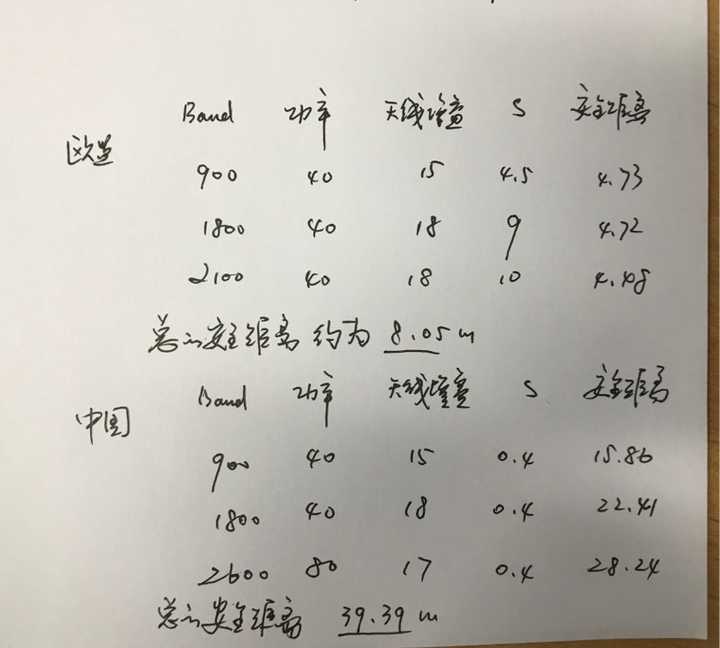 Band 功率 天线增益 S 安全距离
欧盟
900 40 15 4.5 4.73
1800 40 18 9 4.72
2100 40 18 10 4.48
总的安全距离 约为 8.05 m
Band 功率 天线增益 S 安全距离
中国
900 40 15 0.4 15.86
1800 40 18 0.4 22.41
2600 80 17 0.4 28.24
总的安全距离 39.39 m